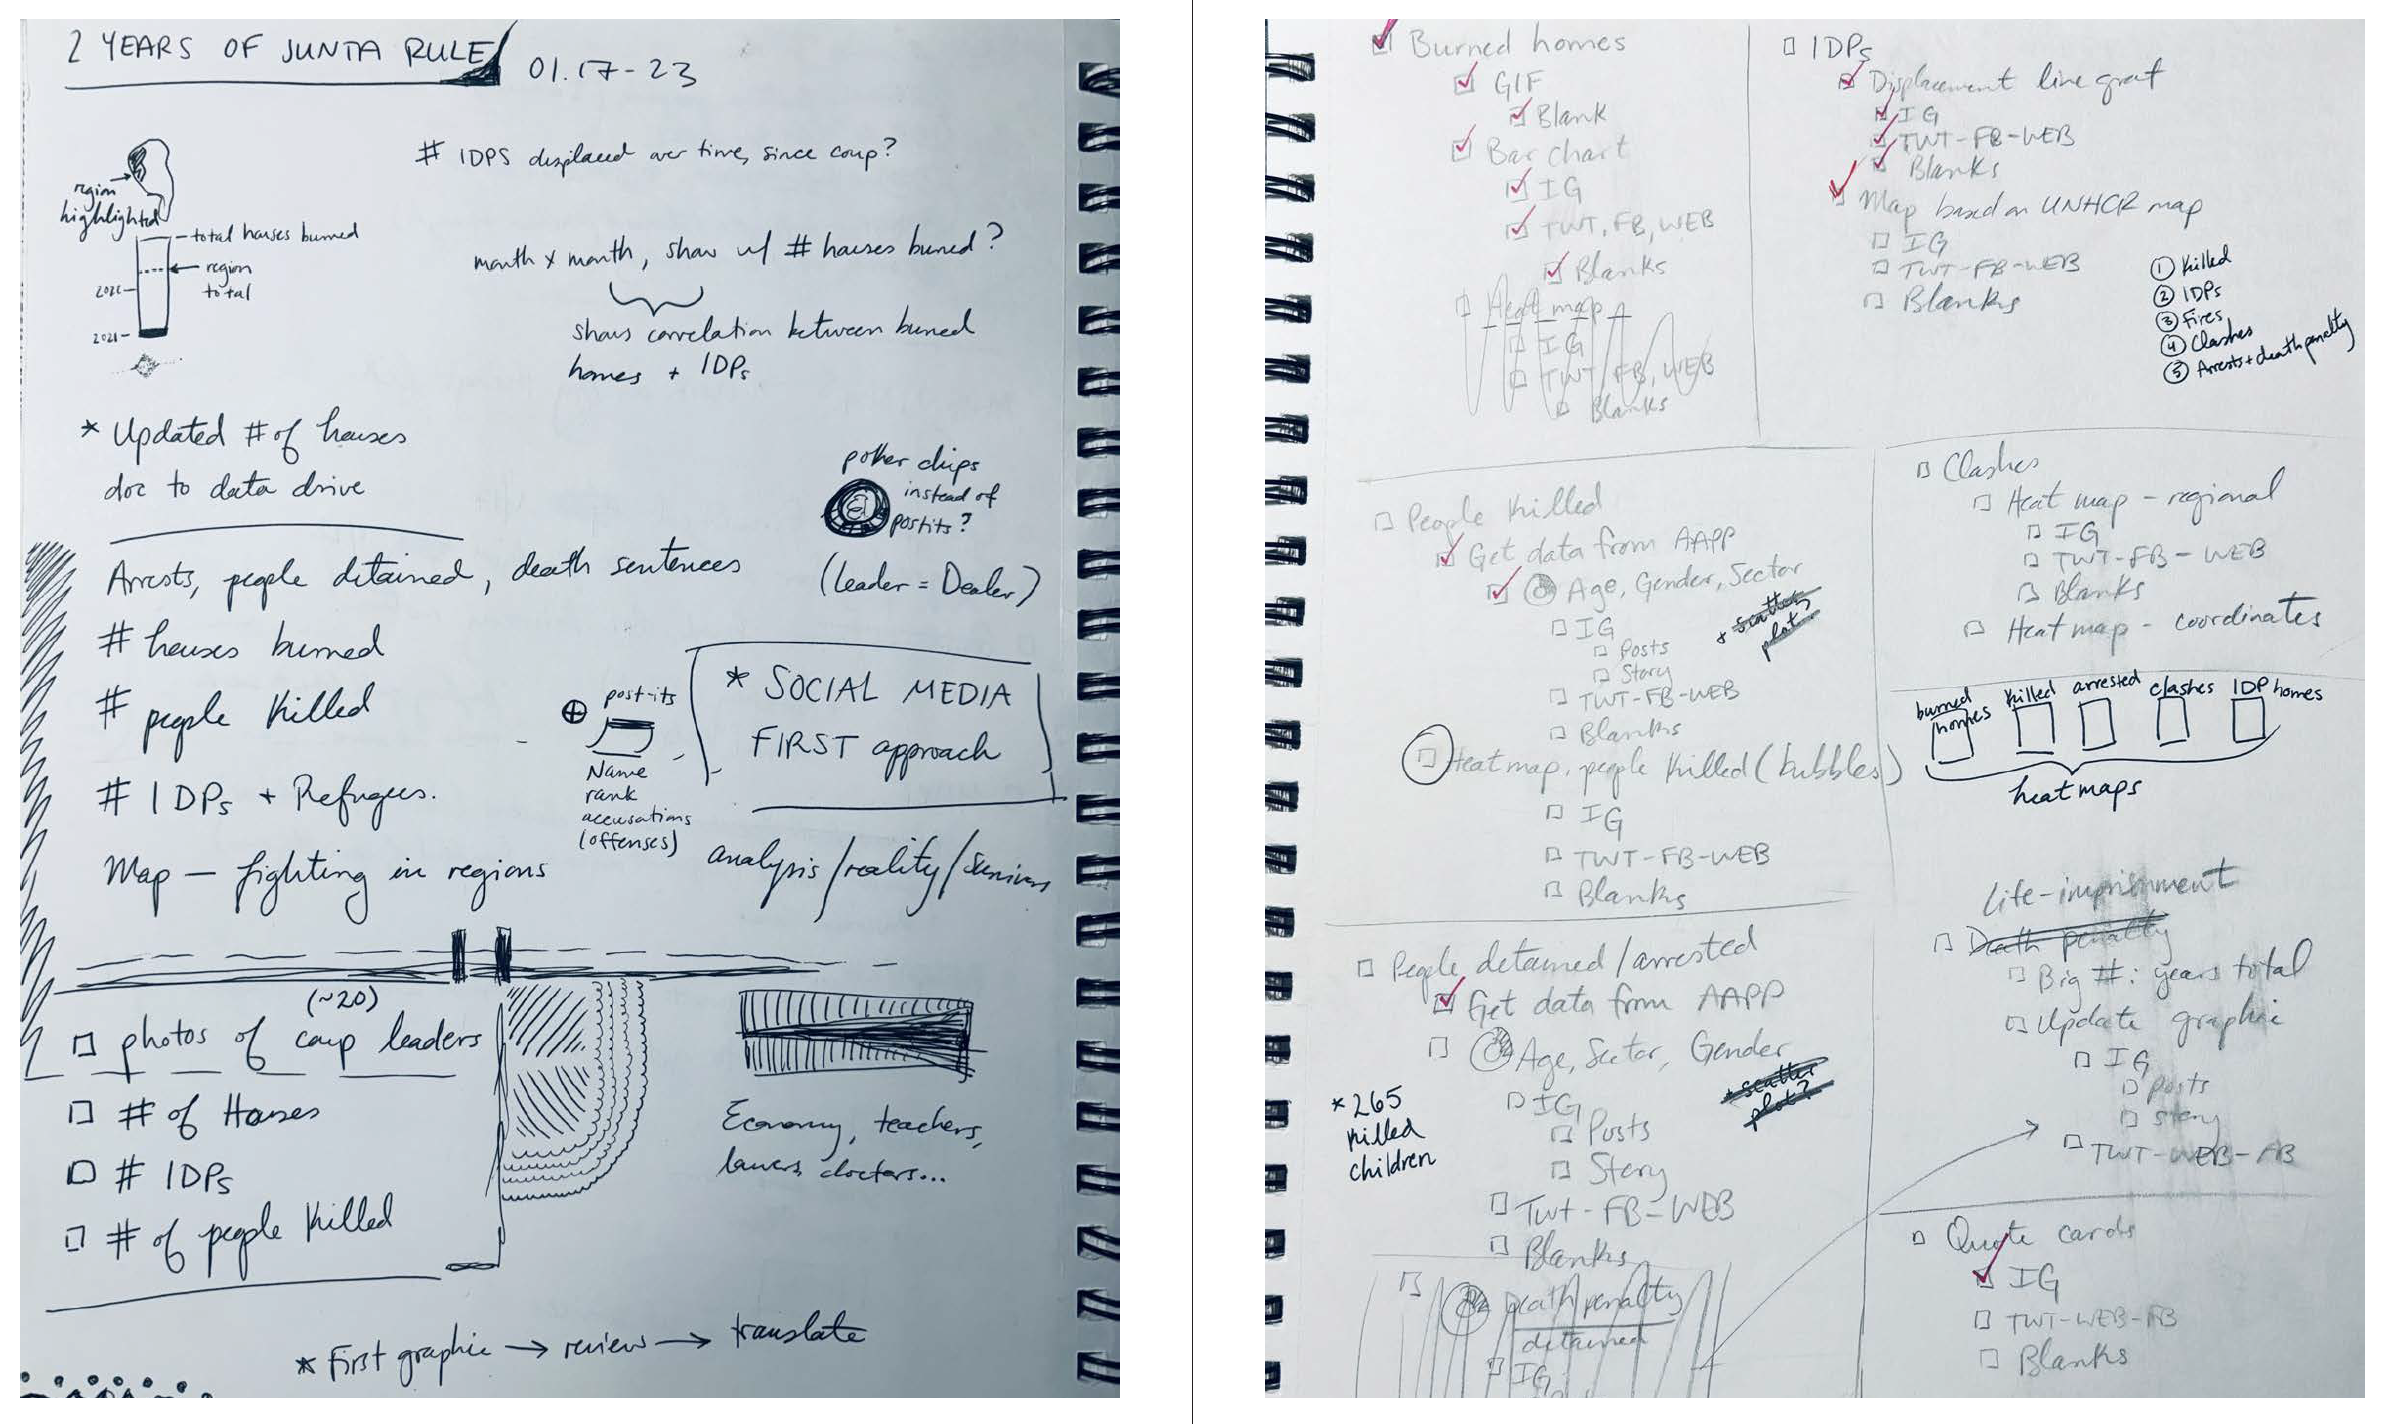 2 YEARS OF JUNTA RULE
01.17-23
# IDPS displaced over time, since coup?
region
highlighted
total houses burned
region
total
2022
2021
month x month, show w/ # houses burned?
shows correlation between burned
homes + IDPs
* Updated # of houses
doc to data drive
poker chips
instead of
postits?
(leader = Dealer)
Arrests, people detained, death sentences
# houses burned
# people killed
# IDPs + Refugees.
Map — fighting in regions
post-its
Name
rank
accusations
(offenses)
* SOCIAL MEDIA
FIRST approach
analysis/reality/
(~20)
photos of coup leaders
# of Houses
# IDPs
# of people killed
Economy, teachers,
doctors...
* First graphic → review → translate
Burned homes
GIF
Blank
Bar chart
IG
TWT, FB, WEB
Blanks
Heat map
IG
TWT, FB, WEB
Blanks
IDPs
Displacement line graf
IG
TWT-FB-WEB
Blanks
Map based on UNHCR map
IG
TWT-FB-WEB
Blanks
① Killed
② IDPs
③ Fires
④ Clashes
⑤ Arrests + death penalty
People killed
Get data from AAPP
Age, Gender, Sector
+ scatter
plot?
IG
Posts
Story
TWT-FB-WEB
Blanks
Heat map, people killed (bubbles)
IG
TWT-FB-WEB
Blanks
Clashes
Heat map - regional
IG
TWT-FB-WEB
Blanks
Heat map - coordinates
burned
homes
killed
arrested
clashes
IDP homes
heat maps
People detained/arrested
Get data from AAPP
Age, Sector, Gender
+ scatter
plot?
* 265
killed
children
IG
Posts
Story
Twt-FB-WEB
Blanks
death penalty
detained
IG
Life-imprisonment
Death penalty
Big #: years total
Update graphic
IG
posts
story
TWT-WEB-FB
Quote cards
IG
TWT-WEB-FB
Blanks